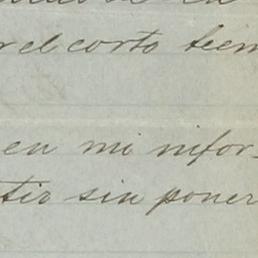 r el corto tiem
en mi infor-
tir sin poner